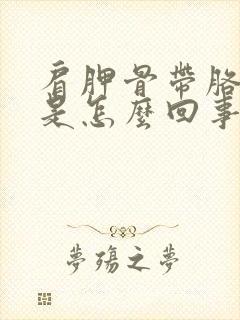 肩胛骨帶胳
是怎麼回事
夢殤之夢